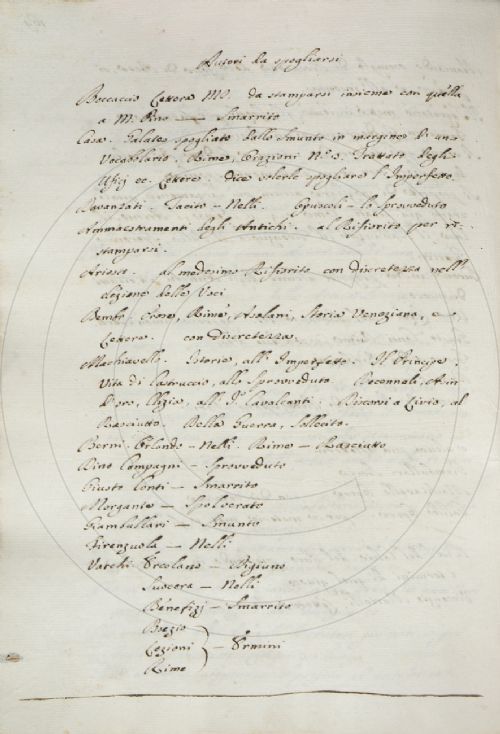 Autori da spogliarsi
Boccaccio Lettere MS. da stamparsi insieme con quella
a M. Pino — Smarrito
Casa. Galateo spogliato dallo Smunto in margene di un
Vocabolario. Rime, Orazioni N.° 3. Trattato degli
Ufizj ec. Lettere. dice volerle spogliare l'Imperfetto
Davanzati. Tacito – Nelli. Opuscoli – lo Sprovveduto
Ammaestramenti degli Antichi. al Rifiorito per ri-
stamparsi.
Ariosto. al medesimo Rifiorito con discretezza nell'
elezione delle Voci
Bembo. Prose, Rime, Asolani, Storia Veneziana, e
Lettere. con discretezza
Machiavello. Istorie, all' Imperfetto. Il Principe.
Vita di Castruccio, allo Sprovveduto. Decennali, Asin
D'oro, Clizia, all' Cavalcanti. Discorsi a Livio, al
Rasciutto. Della Guerra, Sollecito.
Berni. Orlando – Nelli. Rime – Rasciutto
Dino Compagni – Sprovveduto
Giusto Conti – Smarrito
Morgante – Spolverato
Giambullari – Smunto
Firenzuola – Nelli
Varchi Ercolano – Digiuno
Suocera – Nelli
Benefizj – Smarrito
Boezio
Lezioni – Ormini
Rime